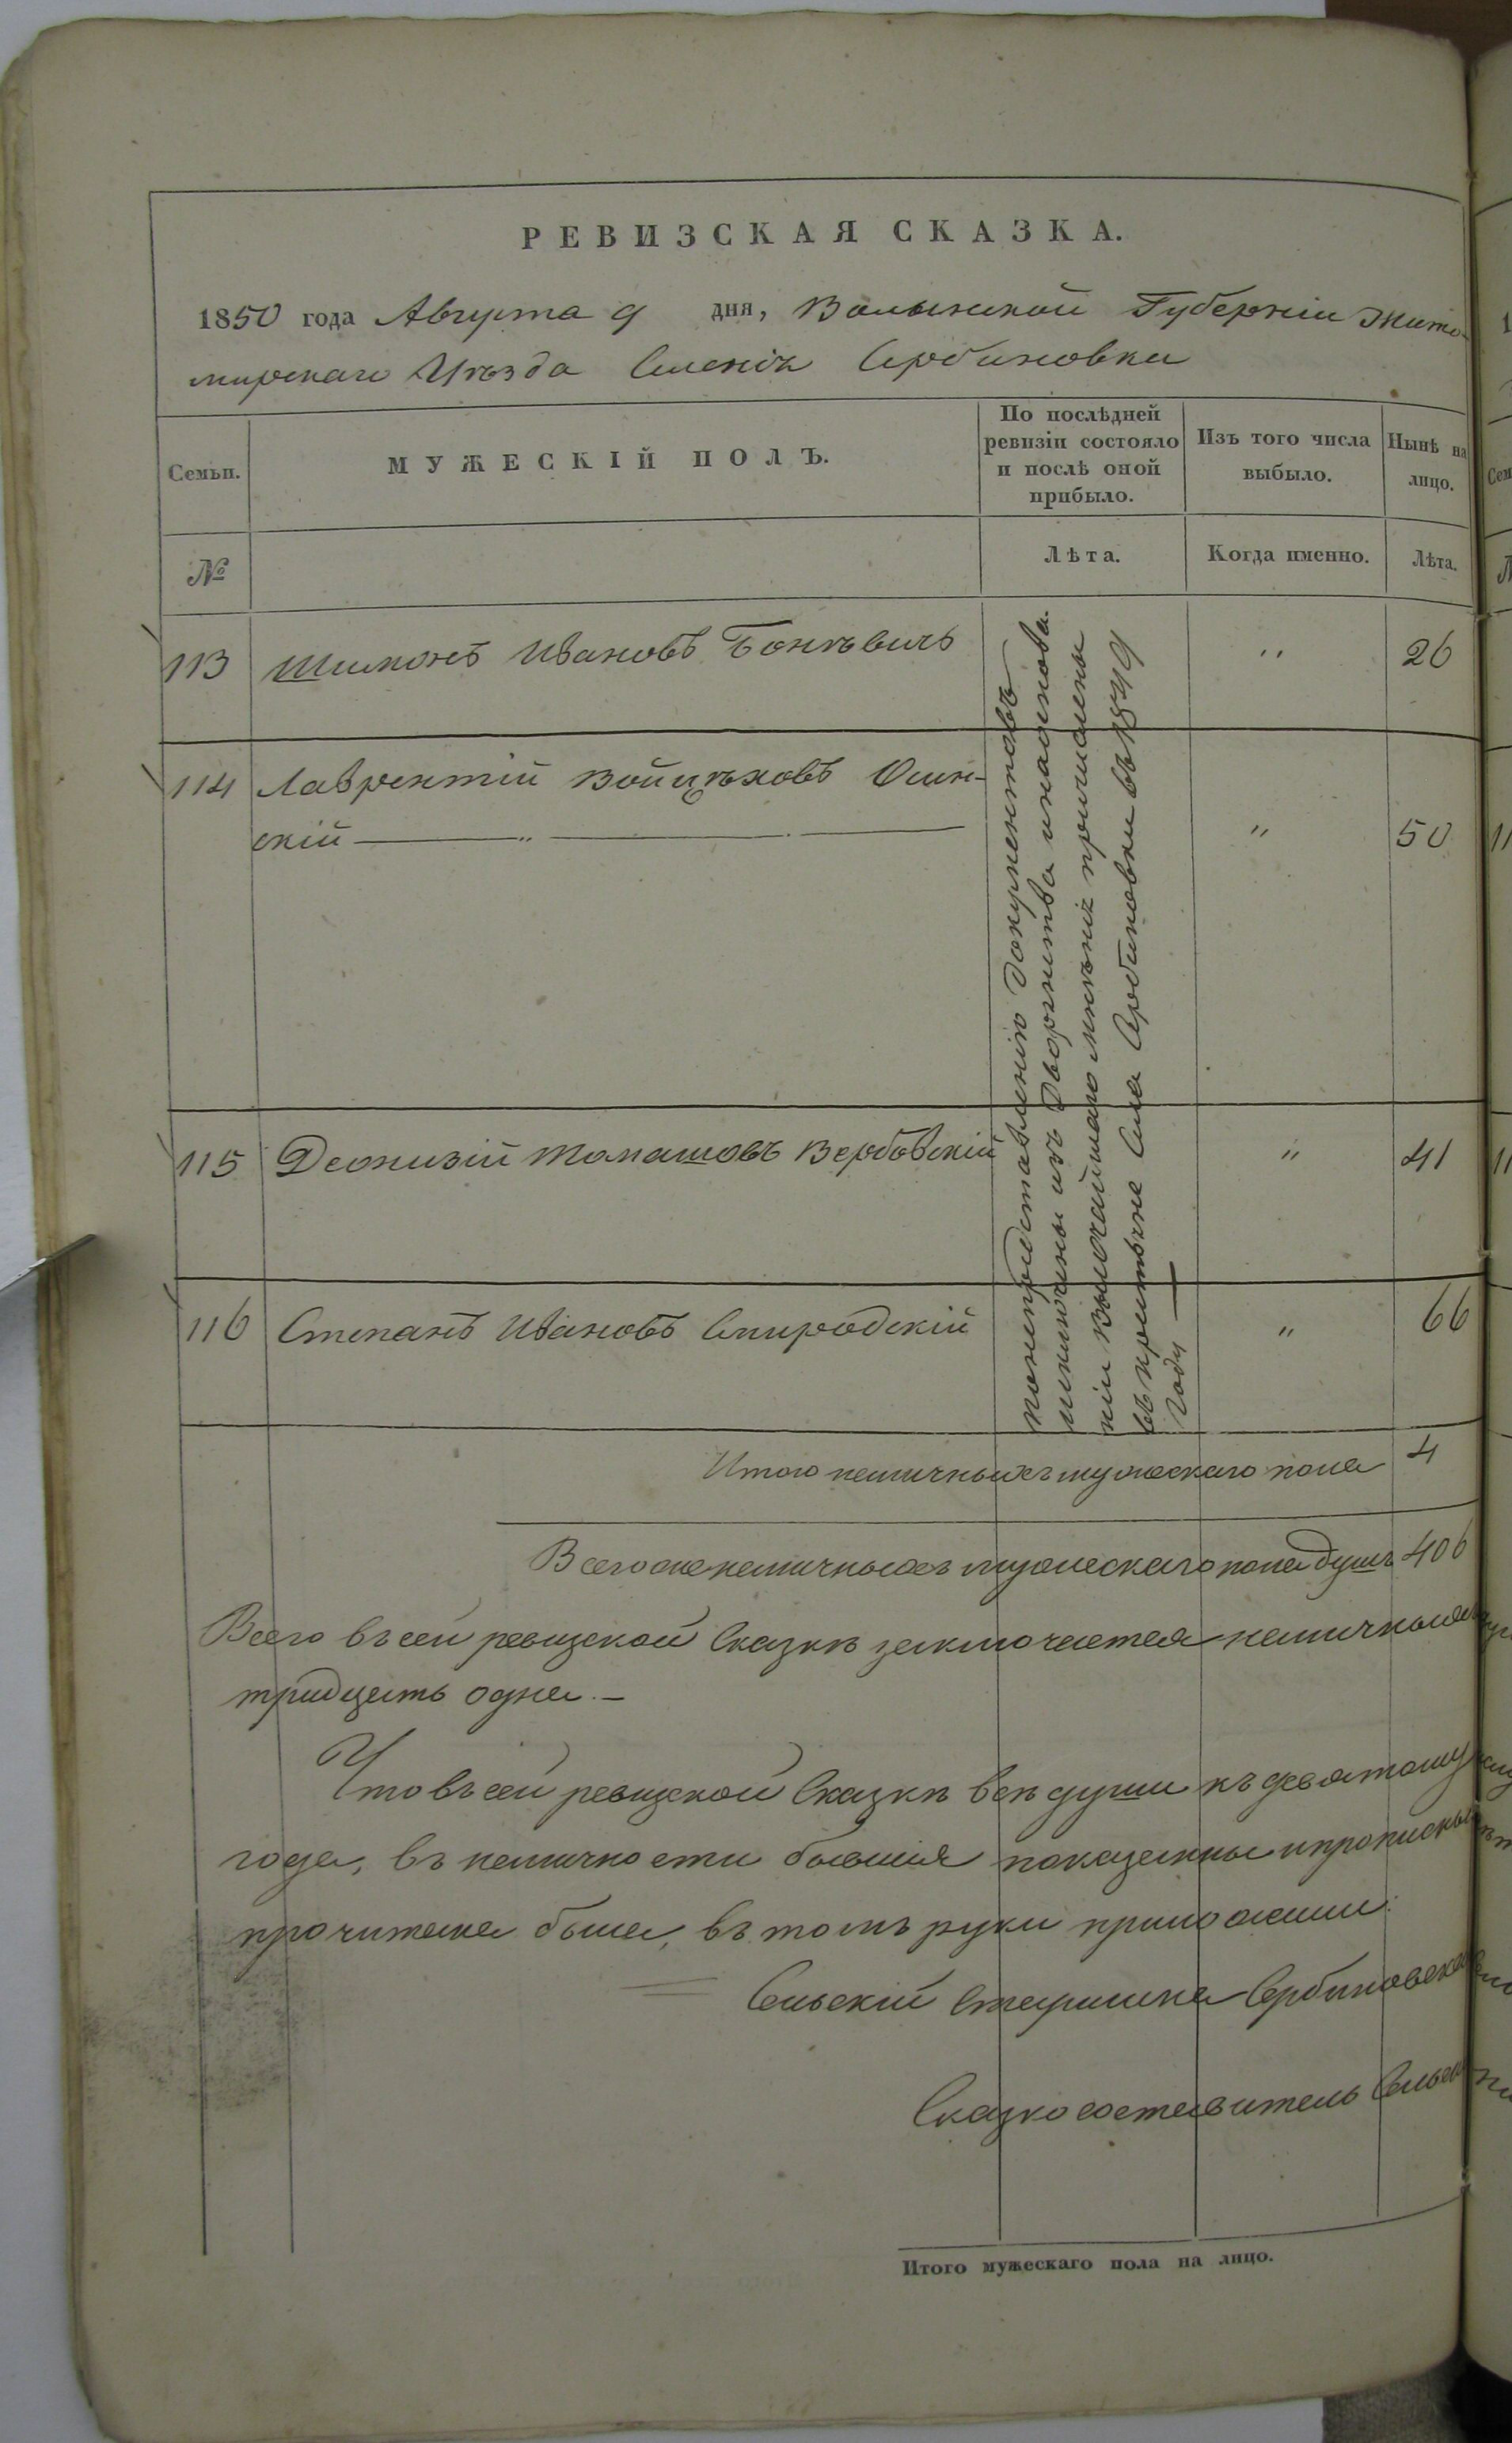 РЕВИЗСКАЯ СКАЗКА.
1850 года Августа 9 дня, Волынской Губерніи Жито-
мирскаго Уѣзда Селенія Сербиновки
Семьи.
МУЖЕСКІЙ ПОЛЪ.
По послѣдней
ревизіи состояло
и послѣ оной
прибыло.
Изъ того числа
выбыло.
Нынѣ на
лицо.
№
Лѣта.
Когда именно.
Лѣта.
113 Шимонъ Ивановъ Бонкѣвичъ " 26
114 Лаврентій Войцѣховъ Осин-
скій " " 50
115 Деонизій Томашовъ Вербовскій " 41
116 Степанъ Ивановъ " 66
понепредставленію документовъ
изъ Дворянства инаоснова
ніи Высочайшаго мнѣнія причислены
въ Села Сербиновки въ 1849
Году
Итого наличныхъ мужескаго пола 4
Всего же наличныхъ мужескаго пола душъ 406
Всего въ сей ревизской Сказкѣ заключается наличныхъ
тридцать одна.—
Что въ сей ревизской Сказкѣ всѣ души къ девятому
года, въ наличности бывшія показанны и прописны
прочитана была, въ томъ руки приложили:
Сельскій Старшина Сербиновска
Сказкосоставитель Сельск
Итого мужескаго пола на лицо.